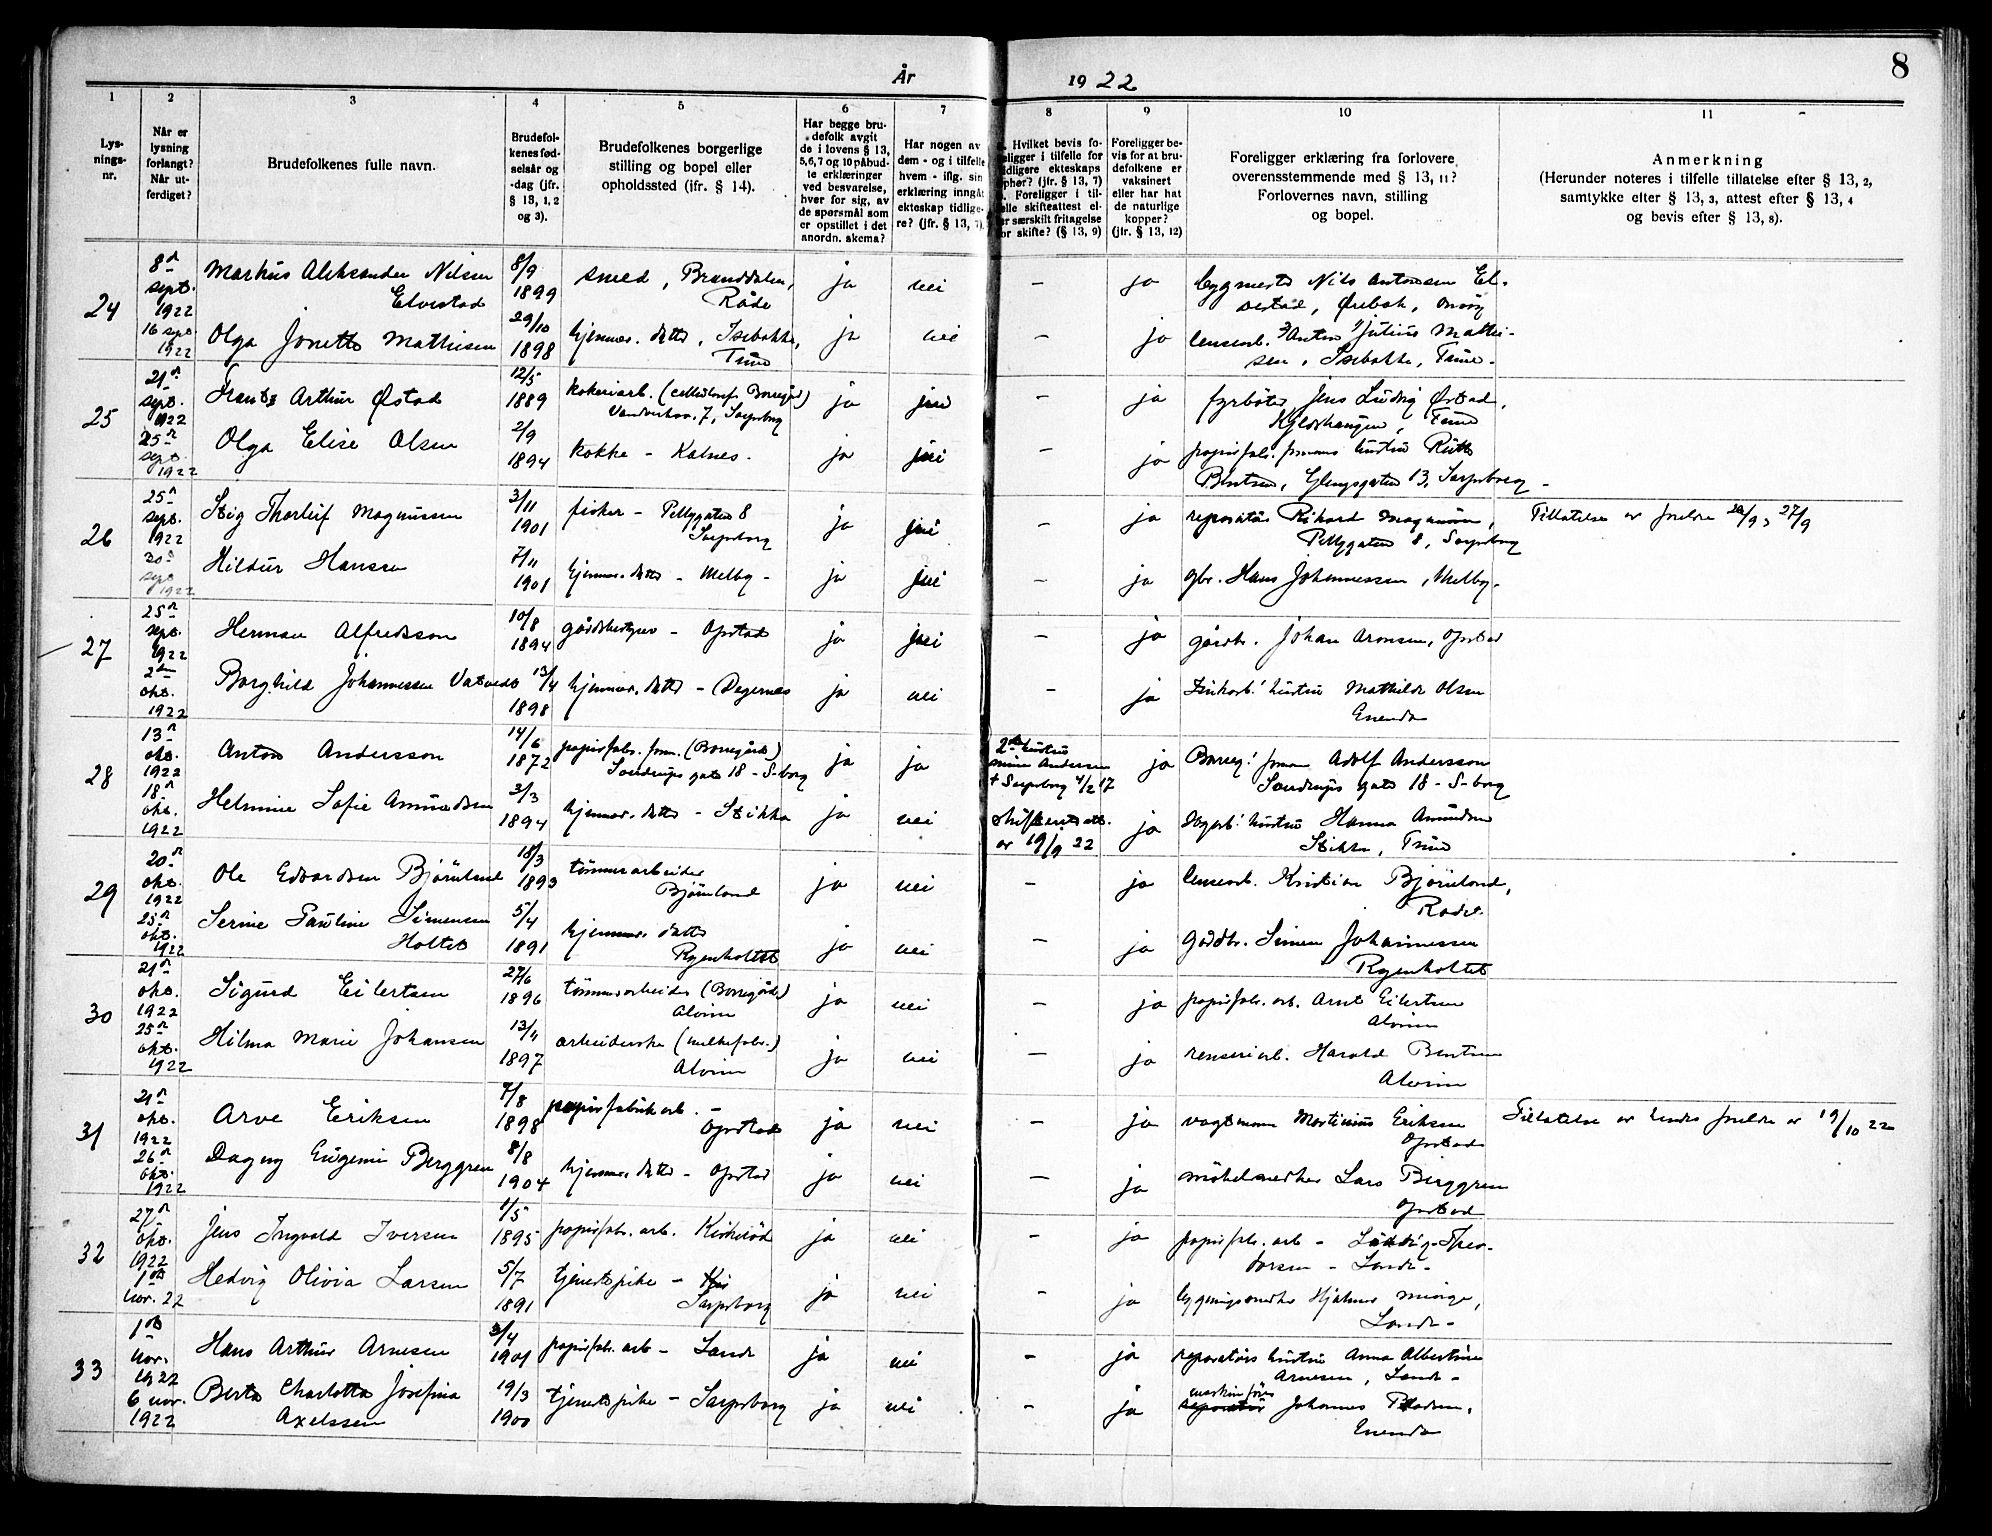 8
År 1922
1
2
3
4
5
6
7
8
9
10
11
Lys-
nings-
nr.
Når er
lysning
forlangt?
Når ut-
ferdiget?
Brudefolkenes fulle navn.
Brudefol-
kenes fød-
selsår og
-dag (jfr.
§ 13, 1, 2
og 3).
Brudefolkenes borgerlige
stilling og bopel eller
opholdssted (ifr. § 14).
Har begge bru-
defolk avgit
de i lovens § 13,
5,6,7 og 10 påbud-
te erklæringer
ved besvarelse,
hver for sig, av
de spørsmål som
er opstillet i det
anordn. skema?
Har nogen av
dem - og i tilfelle
hvem - iflg. sin
erklæring inngåt
ekteskap tidlige-
re? (jfr. § 13, 7)
Hvilket bevis fo-
religger i tilfelle for
tidligere ekteskaps
ophør? (jfr. § 13, 7)
Foreligger i til-
felle skifteattest el-
ler særskilt fritagelse
for skifte? (§ 13, 9)
Foreligger be-
vis for at bru-
defolkene er
vaksinert
eller har hat
de naturlige
kopper?
(jfr. § 13, 12)
Foreligger erklæring fra forlovere
overensstemmende med § 13, 11?
Forlovernes navn, stilling
og bopel.
Anmerkning
(Herunder noteres i tilfelle tillatelse efter § 13, 2,
samtykke efter § 13, 3, attest efter § 13, 4
og bevis efter § 13, 8).
24
8de sept. 1922
Markus Aleksander Nilsen
Elvestad
8/9 1899
smed, Branddalen,
Råde
ja nei – ja
bygmester Nils Antonsen El-
vestad, Ørebæk, Onsøy
16 sept. 1922
Olga Jonette Mathisen
29/10 1898
hjemmev. datter, Isebakke,
Tune
ja nei – ja
lensearb. Anton Julius Mathi-
sen, Isebakke, Tune.
25
21de sept. 1922
Frants Arthur Østad
12/5 1889
kokeriarb. (cellulosef. Borregård)
7, Sarpsborg
ja nei – ja
fyrbøter Jens Ludvig Østad,
Tune
25de sept. 1922
Olga Elise Olsen
2/9 1894
kokke – Kalnes.
ja nei – ja
papirfab. formans hustru Ruth
Bentsen, Glengsgaten 13, Sarpsborg –
26
25de sept. 1922
Stig Thorleif Magnussen
3/11 1901
fisker – Pellygaten 8
Sarpsborg
ja nei – ja
reparatør Rikard Magnussen,
Pellygaten 8, Sarpsborg
Tillatelse av foreldre 26/9, 27/9
30te sept 1922
Hildur Hansen
7/11 1901
hjemmev. datter – Melby –
ja nei – ja
gbr. Hans Johannessen, Melby.
27
25de sept. 1922
Herman Alfredsson
10/8 1894
gårdsbestyrer – Opstad
ja nei – ja
gårdbr. Johan Aronsen, Opstad
2den okt. 1922
Borghild Johannessen Vatvedt
13/4 1898
hjemmev. datter – Degernes
ja nei – ja
hustru Mathilde Olsen
Enenda
28
13de okt. 1922
Anton Andersson
14/6 1872
papirfabr. form. (Borregård)
Sandrups gate 18 – S-borg
ja ja
2den hustru
Andersen
† Sarpsborg 4/2 17
ja
Borreg. forman Adolf Andersson
Sandrups gate 18 – S-borg
18de okt. 1922
Helmine Sofie Amundsen
3/3 1894
hjemmev. datter – Stikka
ja nei
skifteretts att.
av 19/9 22
ja
hustru Hanna Amundsen
Stikka, Tune
29
20de okt. 1922
Ole Edvardsen Bjørnland
18/3 1893
tømmerarbeider
Bjørnland
ja nei – ja
lensearb. Kristian Bjørnland,
Råde.
25de okt. 1922
Serine Pauline Simensen
Holtet
5/4 1891
hjemmev. datter
Ryenholtet
ja nei – ja
Gårdbr. Simen Johannessen
Ryenholtet
30
21de okt. 1922
Sigurd Eilertsen
27/6 1896
tømmerarbeider (Borregård)
Alvim
ja nei – ja
papirfabr. arb. Arnt Eilertsen
Alvim
25de okt. 1922
Hilma Marie Johansen
13/11 1897
arbeiderske (melkefabr.)
Alvim
ja nei – ja
renseriarb. Harald Bentsen
Alvim
31
21de okt. 1922
Arve Eriksen
7/8 1898
papirfabrikarb. –
Opstad
ja nei – ja
vagtmann Martinius Eriksen
Opstad
Tillatelse av hendes foreldre av 19/10 22
26de okt. 1922
Dagny Eugenie Berggren
8/8 1904
hjemmev. datter – Opstad
ja nei – ja
møbelsnedker Lars Berggren
Opstad
32
27de okt. 1922
Jens Ingvald Iversen
1/5 1895
papirfabr. arb. Kirkelød
ja nei – ja
papirfabr. arb – Ludvig Theo-
dorsen – Lande –
1ste nov. 22
Hedvig Olivia Larsen
5/7 1891
tjenestepike –
Sarpsborg
ja nei – ja
bygningssnedker Hjalmar Minge,
Lande –
33
1ste nov. 1922
Hans Arthur Arnesen
3/4 1901
papirfabr. arb – Lande
ja nei – ja
reparatørs hustru Anna Albertine
Arnesen, Lande –
6 nov. 1922
Berta Charlotta Josefina
Axelssen
19/3 1900
tjenestepike – Sarpsborg
ja nei – ja
maskinfører
reparatør Johannes Pedersen,
Enenda